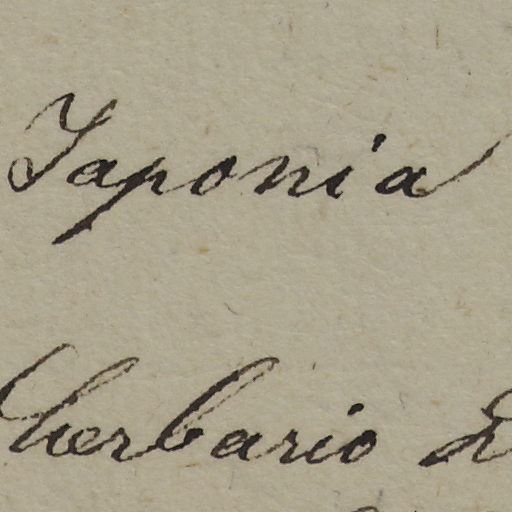 Japonia
herbario